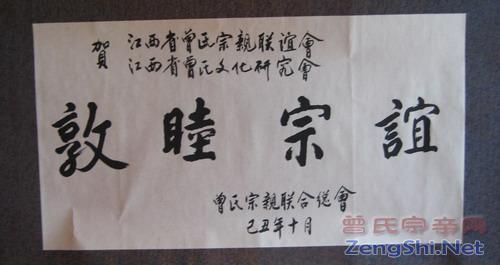 賀
江西省曾氏宗親联誼會
江西省曾氏文化研究會
敦睦宗誼
曾氏宗親联合總會
己丑年十月
曾氏宗亲网
ZengShi.Net